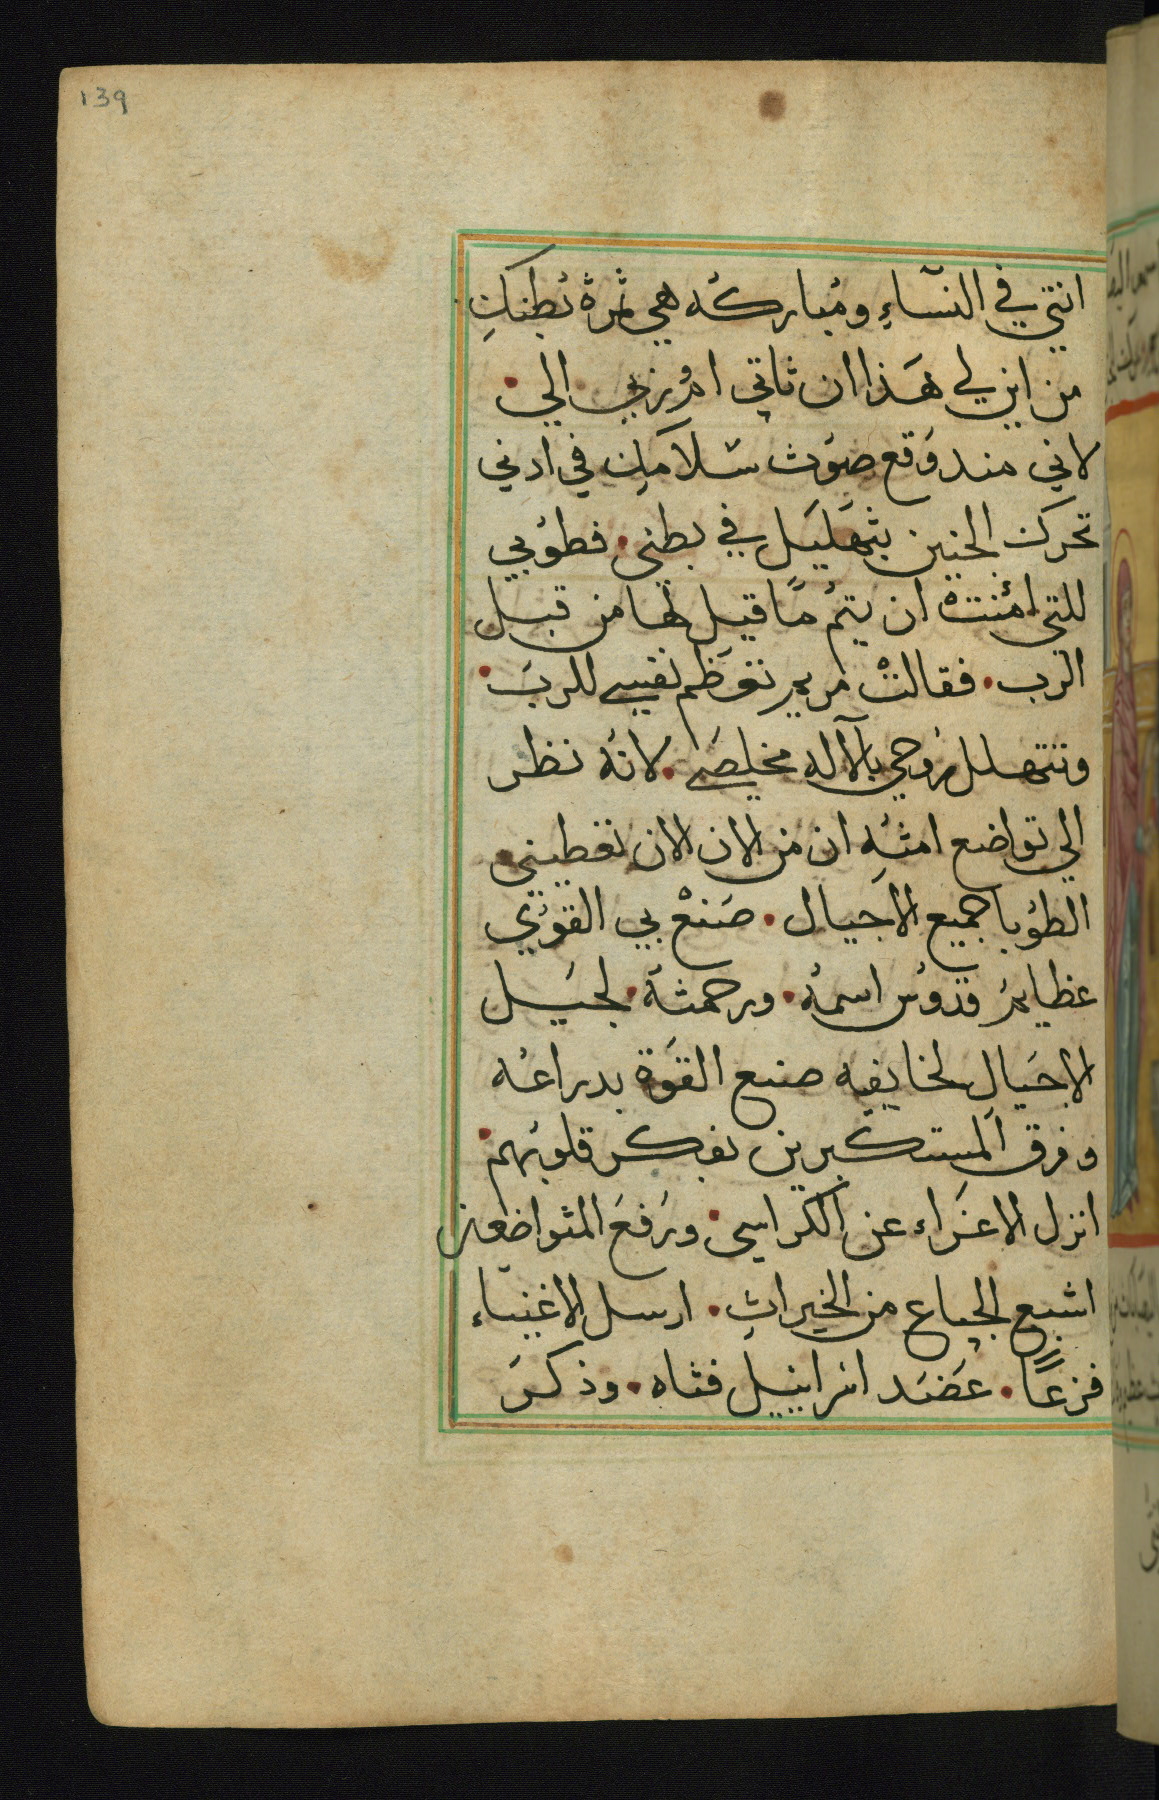 139
انتي في النسَاءِ ومُباركُه هي ثمرة بُطنكِ
من اين لي هَذا ان ثاتي امُ ربي الي.
لاني مند وَقع صوُت سَلامكِ في ادني
تحركت الجنين بثهَليَل في بطني. فطوُبي
للتي امُنتهْ ان يتمُ مَا قيل لها من قبل
الرب. فقالتْ مريم تعَوظم نفسي للربَ.
وتتهلل رُوحي بالآله مخلِصَي. لانهُ نظر
الي تواضع امتهِ ان من الان الان نقطيني
الطوُبا جميع الاجيال. صَنعْ بي القوُي
عظايمُ وقدوُس اسمهُ. ورحمثهَ. لجيَل
الاجيَال لخايفيه صنع القوَة بدراعُه
وفرق المستكبرين بفكر قلوبُهم.
انزل الاعزَاء عن الكراسي. ورَفعَ المثواضعين
اشبع الجياع من الخيراثِ. ارسل الاغنياء
فزعًا. عَضَد اسراييل فثاه. وذكَر